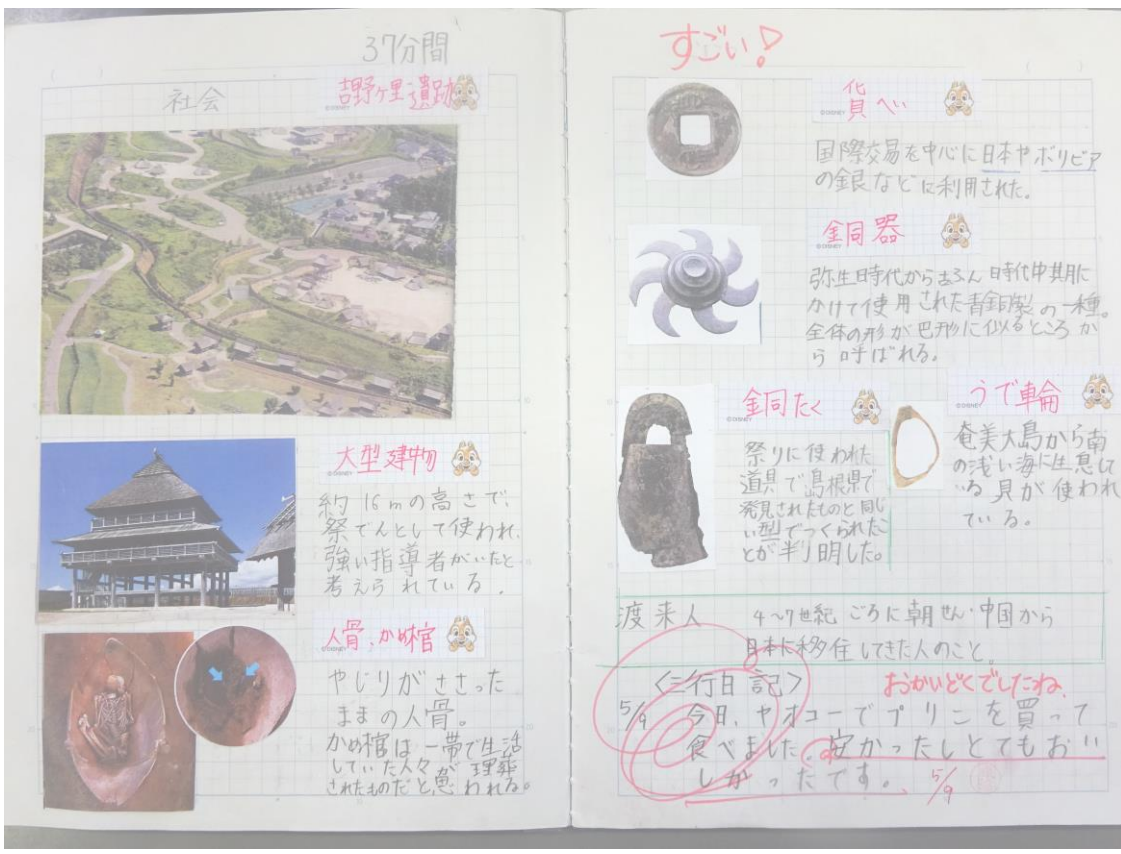 37分間
社会
吉野ヶ里遺跡
©DISNEY
大型建物
©DISNEY
約16mの高さで、
祭でんとして使われ、
強い指導者がいたと
考えられている。
人骨、かめ棺
©DISNEY
やじりがささった
ままの人骨。
かめ棺は一帯で生活
していた人々が埋葬
されたものだと思われる。
すごい!
貨へい
©DISNEY
国際交易を中心に日本やボリビア
の銀などに利用された。
銅器
©DISNEY
弥生時代から古ふん時代中期に
かけて使用された青銅製の一種。
全体の形が巴形に似るところか
ら呼ばれる。
銅たく
©DISNEY
祭りに使われた
道具で島根県で
発見されたものと同じ
い型でつくられたこ
とが判明した。
うで輪
©DISNEY
奄美大島から南
の浅い海に生息して
いる貝が使われ
ている。
渡来人 4〜7世紀ごろに朝せん・中国から
日本に移住してきた人のこと。
〈三行日記〉
おかいどくでしたね。
5/9 今日、ヤオコーでプリンを買って
食べました。安かったしとてもおい
しかったです。
5/9